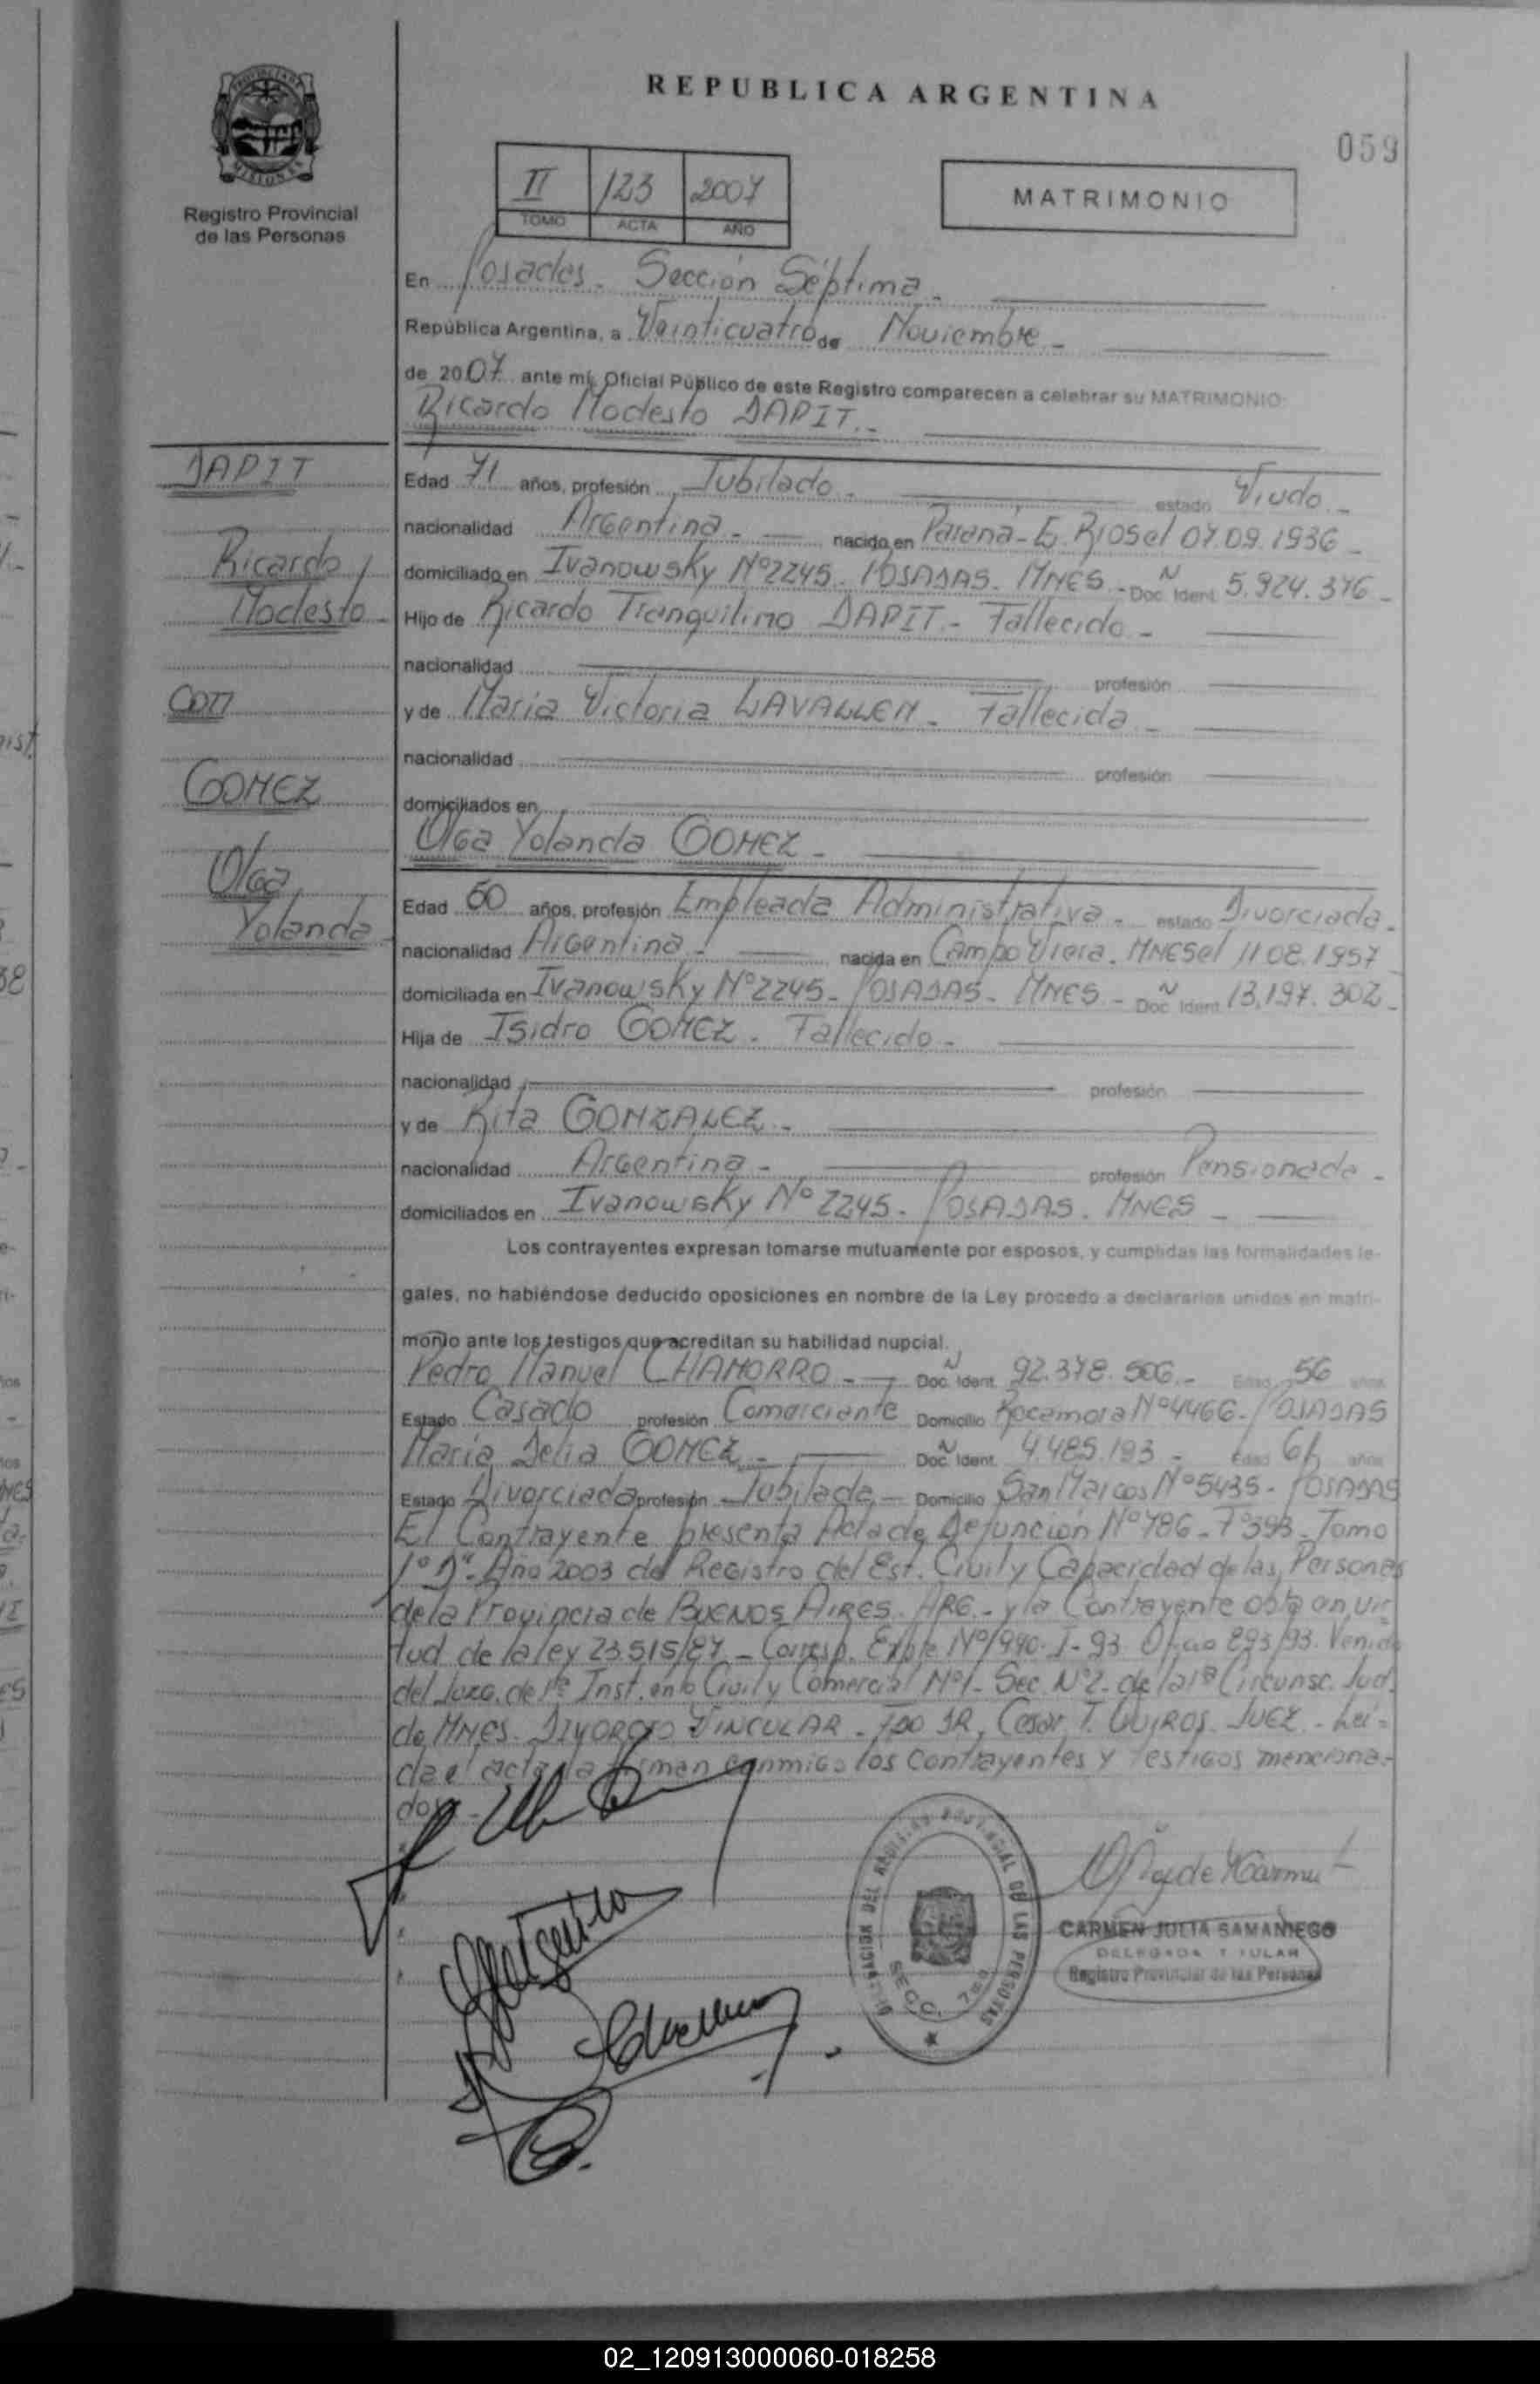 REPUBLICA ARGENTINA
059
Registro Provincial
de las Personas
II 123 2007
TOMO ACTA AÑO
MATRIMONIO
En Posadas - Sección Séptima -
República Argentina, a Veinticuatro de Noviembre -
de 2007 ante mí, Oficial Público de este Registro comparecen a celebrar su MATRIMONIO:
Ricardo Modesto DAPIT. -
DAPIT
Ricardo
Modesto -
con
GOMEZ
Olga
Yolanda -
Edad 71 años, profesión Jubilado - estado Viudo. -
nacionalidad Argentina - nacido en Paraná - E. Rios el 07.09.1936 -
domiciliado en Ivanowsky Nº 2245 - POSADAS - MNES - Doc. Ident. N 5.924.376 -
Hijo de Ricardo Tranquilino DAPIT - Fallecido -
nacionalidad profesión
y de María Victoria LAVALLEN - Fallecida -
nacionalidad profesión
domiciliados en
Olga Yolanda GOMEZ -
Edad 50 años, profesión Empleada Administrativa - estado Divorciada -
nacionalidad Argentina - nacida en Campo Viera. MNES el 11.08.1957
domiciliada en Ivanowsky Nº 2245 - POSADAS - MNES - Doc. Ident. N 13.197.302 -
Hija de Isidro GOMEZ - Fallecido -
nacionalidad profesión
y de Rita GONZALEZ -
nacionalidad Argentina - profesión Pensionada -
domiciliados en Ivanowsky Nº 2245 - POSADAS - MNES -
Los contrayentes expresan tomarse mutuamente por esposos, y cumplidas las formalidades le-
gales, no habiéndose deducido oposiciones en nombre de la Ley procedo a declararlos unidos en matri-
monio ante los testigos que acreditan su habilidad nupcial.
Pedro Manuel CHAMORRO - Doc. Ident. N 92.378.506 - Edad 56 años
Estado Casado profesión Comerciante Domicilio Rocamora Nº 4466 - POSADAS
María Delia GOMEZ - Doc. Ident. N 4.485.193 - Edad 61 años
Estado Divorciada profesión Jubilada - Domicilio San Marcos Nº 5435 - POSADAS
El Contrayente presenta Acta de Defunción Nº 786 - Fº 393 - Tomo
1º D". Año 2003 del Registro del Est. Civil y Capacidad de las Personas
de la Provincia de BUENOS AIRES. ARG. - y la Contrayente obta en vir
tud de la ley 23.515/87 - Corresp. Expte Nº 1990 - I - 93 Oficio 893/93. Venido
del Juzg. de 1ra Inst. en lo Civil y Comercial Nº 1 - Sec. Nº 2 - de la 1ª Circunsc. Jud.
de MNES. DIVORCIO VINCULAR - FDO DR. Cesar T. QUIROS. JUEZ. - Lei-
da el acta la firman conmigo los contrayentes y testigos menciona-
dos -
DELEGACION DEL REGISTRO PROVINCIAL DE LAS PERSONAS
SECC. 7ma
CARMEN JULIA SAMANIEGO
DELEGADA TITULAR
Registro Provincial de las Personas
02_120913000060-018258